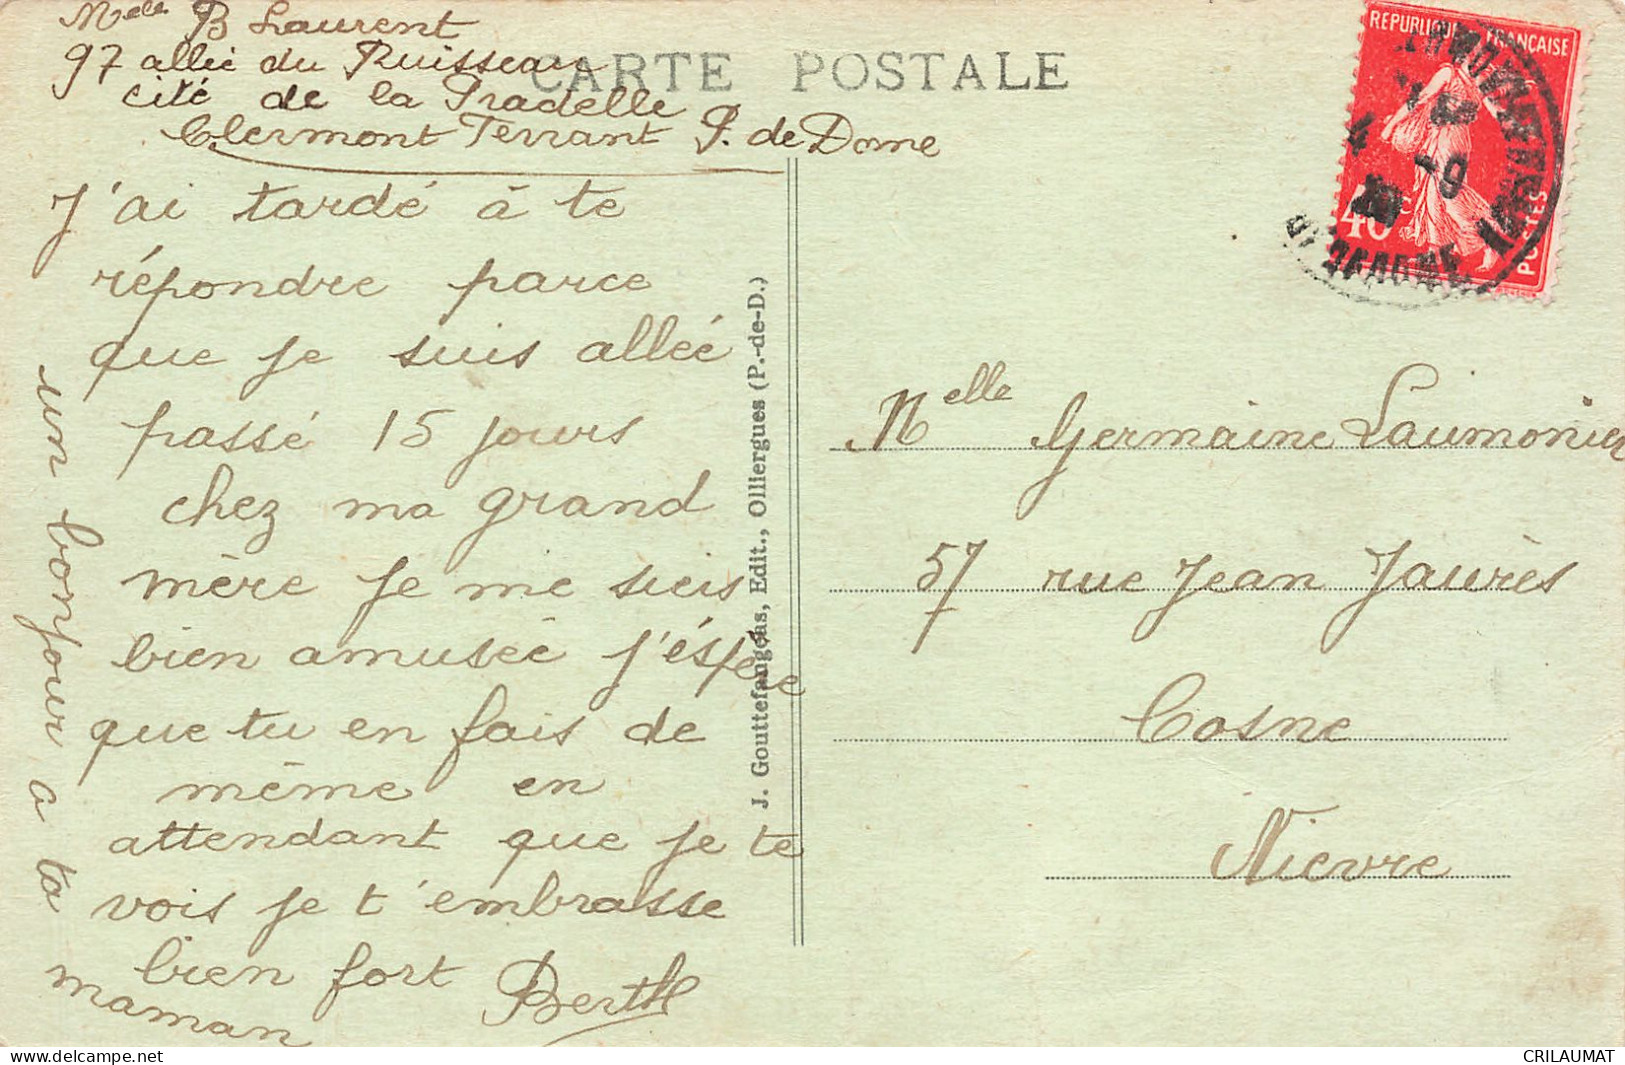 Melle B Laurent
97 allée du Ruisseau
cité de la Pradelle
Clermont Ferrant P. de Dome
CARTE POSTALE
J'ai tardé à te
répondre parce
que je suis allée
passé 15 jours
chez ma grand
mère je me suis
bien amusée j'éspère
que tu en fais de
même en
attendant que je te
vois je t'embrasse
bien fort Berthe
un bonjour a ta
maman
J. Gouttefangeas, Edit., Olliergues (P.-de-D.)
REPUBLIQUE FRANÇAISE
40c
POSTES
4 -9
Melle Germaine Laumonier
57 rue Jean Jaurès
Cosne
Nièvre
CRILAUMAT